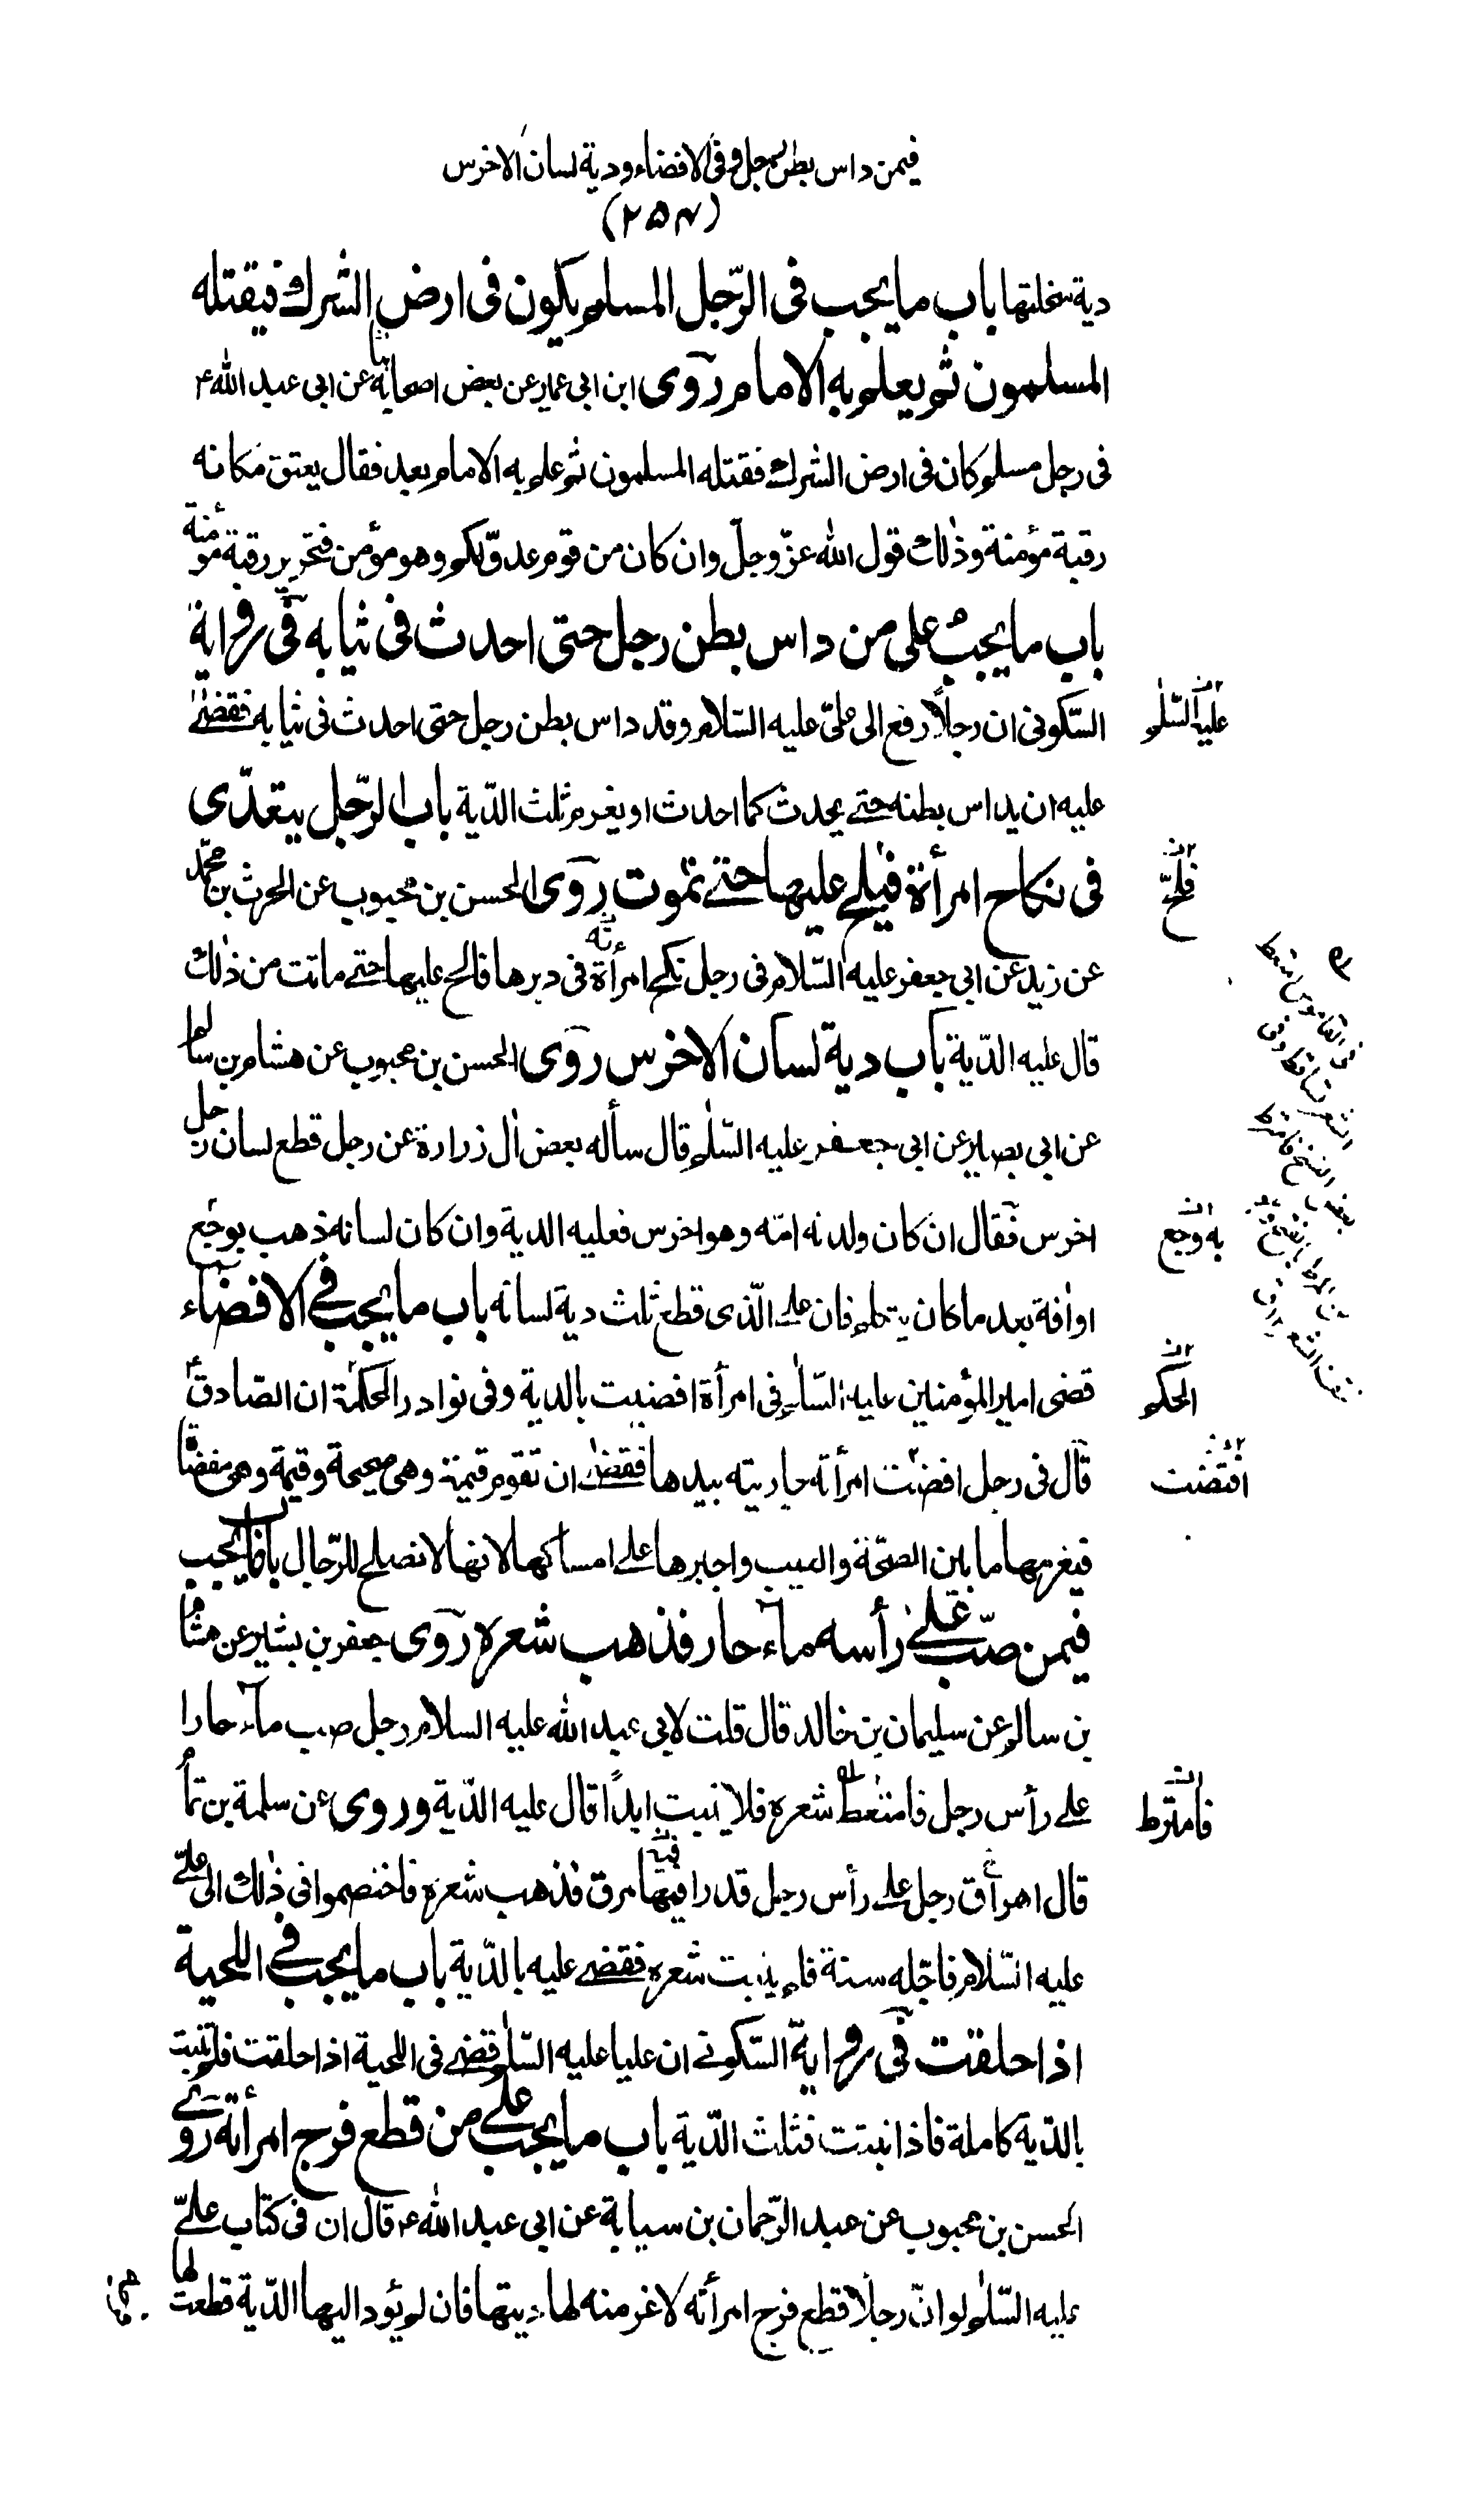 فيمن داس بطن رجل وفى الافضاء ودية لسان الاخرس
(٢٥٧)
دية سخلتها باب ما يجب فى الرّجل المسلم يكون فى ارض الشرك فيقتله
المسلمون ثم يعلم به الامام روى ابن ابى عمير عن بعض اصحابنا عن ابى عبد الله ع
فى رجل مسلم كان فى ارض الشرك فقتله المسلمون ثم علم به الامام بعد فقال يعتق مكانه
رقبة مؤمنة وذلك قول الله عزّ وجلّ وان كان من قوم عدوّ لكم وهو مؤمن فتحرير رقبة مؤمنة
باب ما يجب على من داس بطن رجل حتى احدث فى ثيابه فى رواية
السّكونى ان رجلاً رفع الى علىّ عليه السّلام وقد داس بطن رجل حتى احدث فى ثيابه فقضى
عليه السّلم
عليه ان يداس بطنه حتى يحدث كما احدث او يغرم ثلث الدّية باب الرّجل يتعدّى
فى نكاح امرأة فيلح عليها حتى تموت روى الحسن بن محبوب عن الحرث بن محمّد
فلحّ
عن زيد عن ابى جعفر عليه السّلام فى رجل نكح امرأة فى دبرها فالح عليها حتى ماتت من ذلك
قال عليه الدّية باب دية لسان الاخرس روى الحسن بن محبوب عن هشام بن سالم
عن ابى بصير عن ابى جعفر عليه السّلم قال سأله بعض ال زرارة عن رجل قطع لسان رجل
اخرس فقال ان كان ولدته امّه وهو اخرس فعليه الدية وان كان لسانه ذهب بوجع
به وجع
او افة بعد ما كان يتكلم فان على الّذى قطع ثلث دية لسانه باب ما يجب فى الافضاء
قضى امير المؤمنين عليه السّلم فى امرأة افضيت بالدية وفى نوادر الحكمة ان الصّادق ع
الحكم
قال فى رجل افضت امرأته جاريته بيدها فقضى ان تقوم قيمة وهى صحيحة وقيمة وهى مفضاة
افتضت
فيغرمها ما بين الصحّة والعيب واجبرها على امساكها لانها لا تصلح للرّجال باب ما يجب
فيمن صبّ على رأسه ماء حار فذهب شعره روى جعفر بن بشير عن هشام
بن سالم عن سليمان بن خالد قال قلت لابى عبد الله عليه السلام رجل صب ماء حارا
على رأس رجل فامتعط شعره فلا ينبت ابداً قال عليه الدّية وروى عن سلمة بن تمام
فامترط
قال اهراق رجل على رأس رجل قدرا فيها مرق فذهب شعره فاختصموا فى ذلك الى علىّ
عليه السّلام فاجّله سنة فلم ينبت شعره فقضى عليه بالدّية باب ما يجب فى اللحية
اذا حلقت فى رواية السّكونى ان عليا عليه السّلم قضى فى اللحية اذا حلقت فلم تنبت
بالدّية كاملة فاذا نبتت فثلث الدّية باب ما يجب على من قطع فرج امرأته روى
الحسن بن محبوب عن عبد الرّحمان بن سيابة عن ابى عبد الله ع قال ان فى كتاب علىّ
عليه السّلم لو انّ رجلا قطع فرج امرأته لاغرمنه لها ديتها فان لم يؤد اليها الدّية قطعت لها